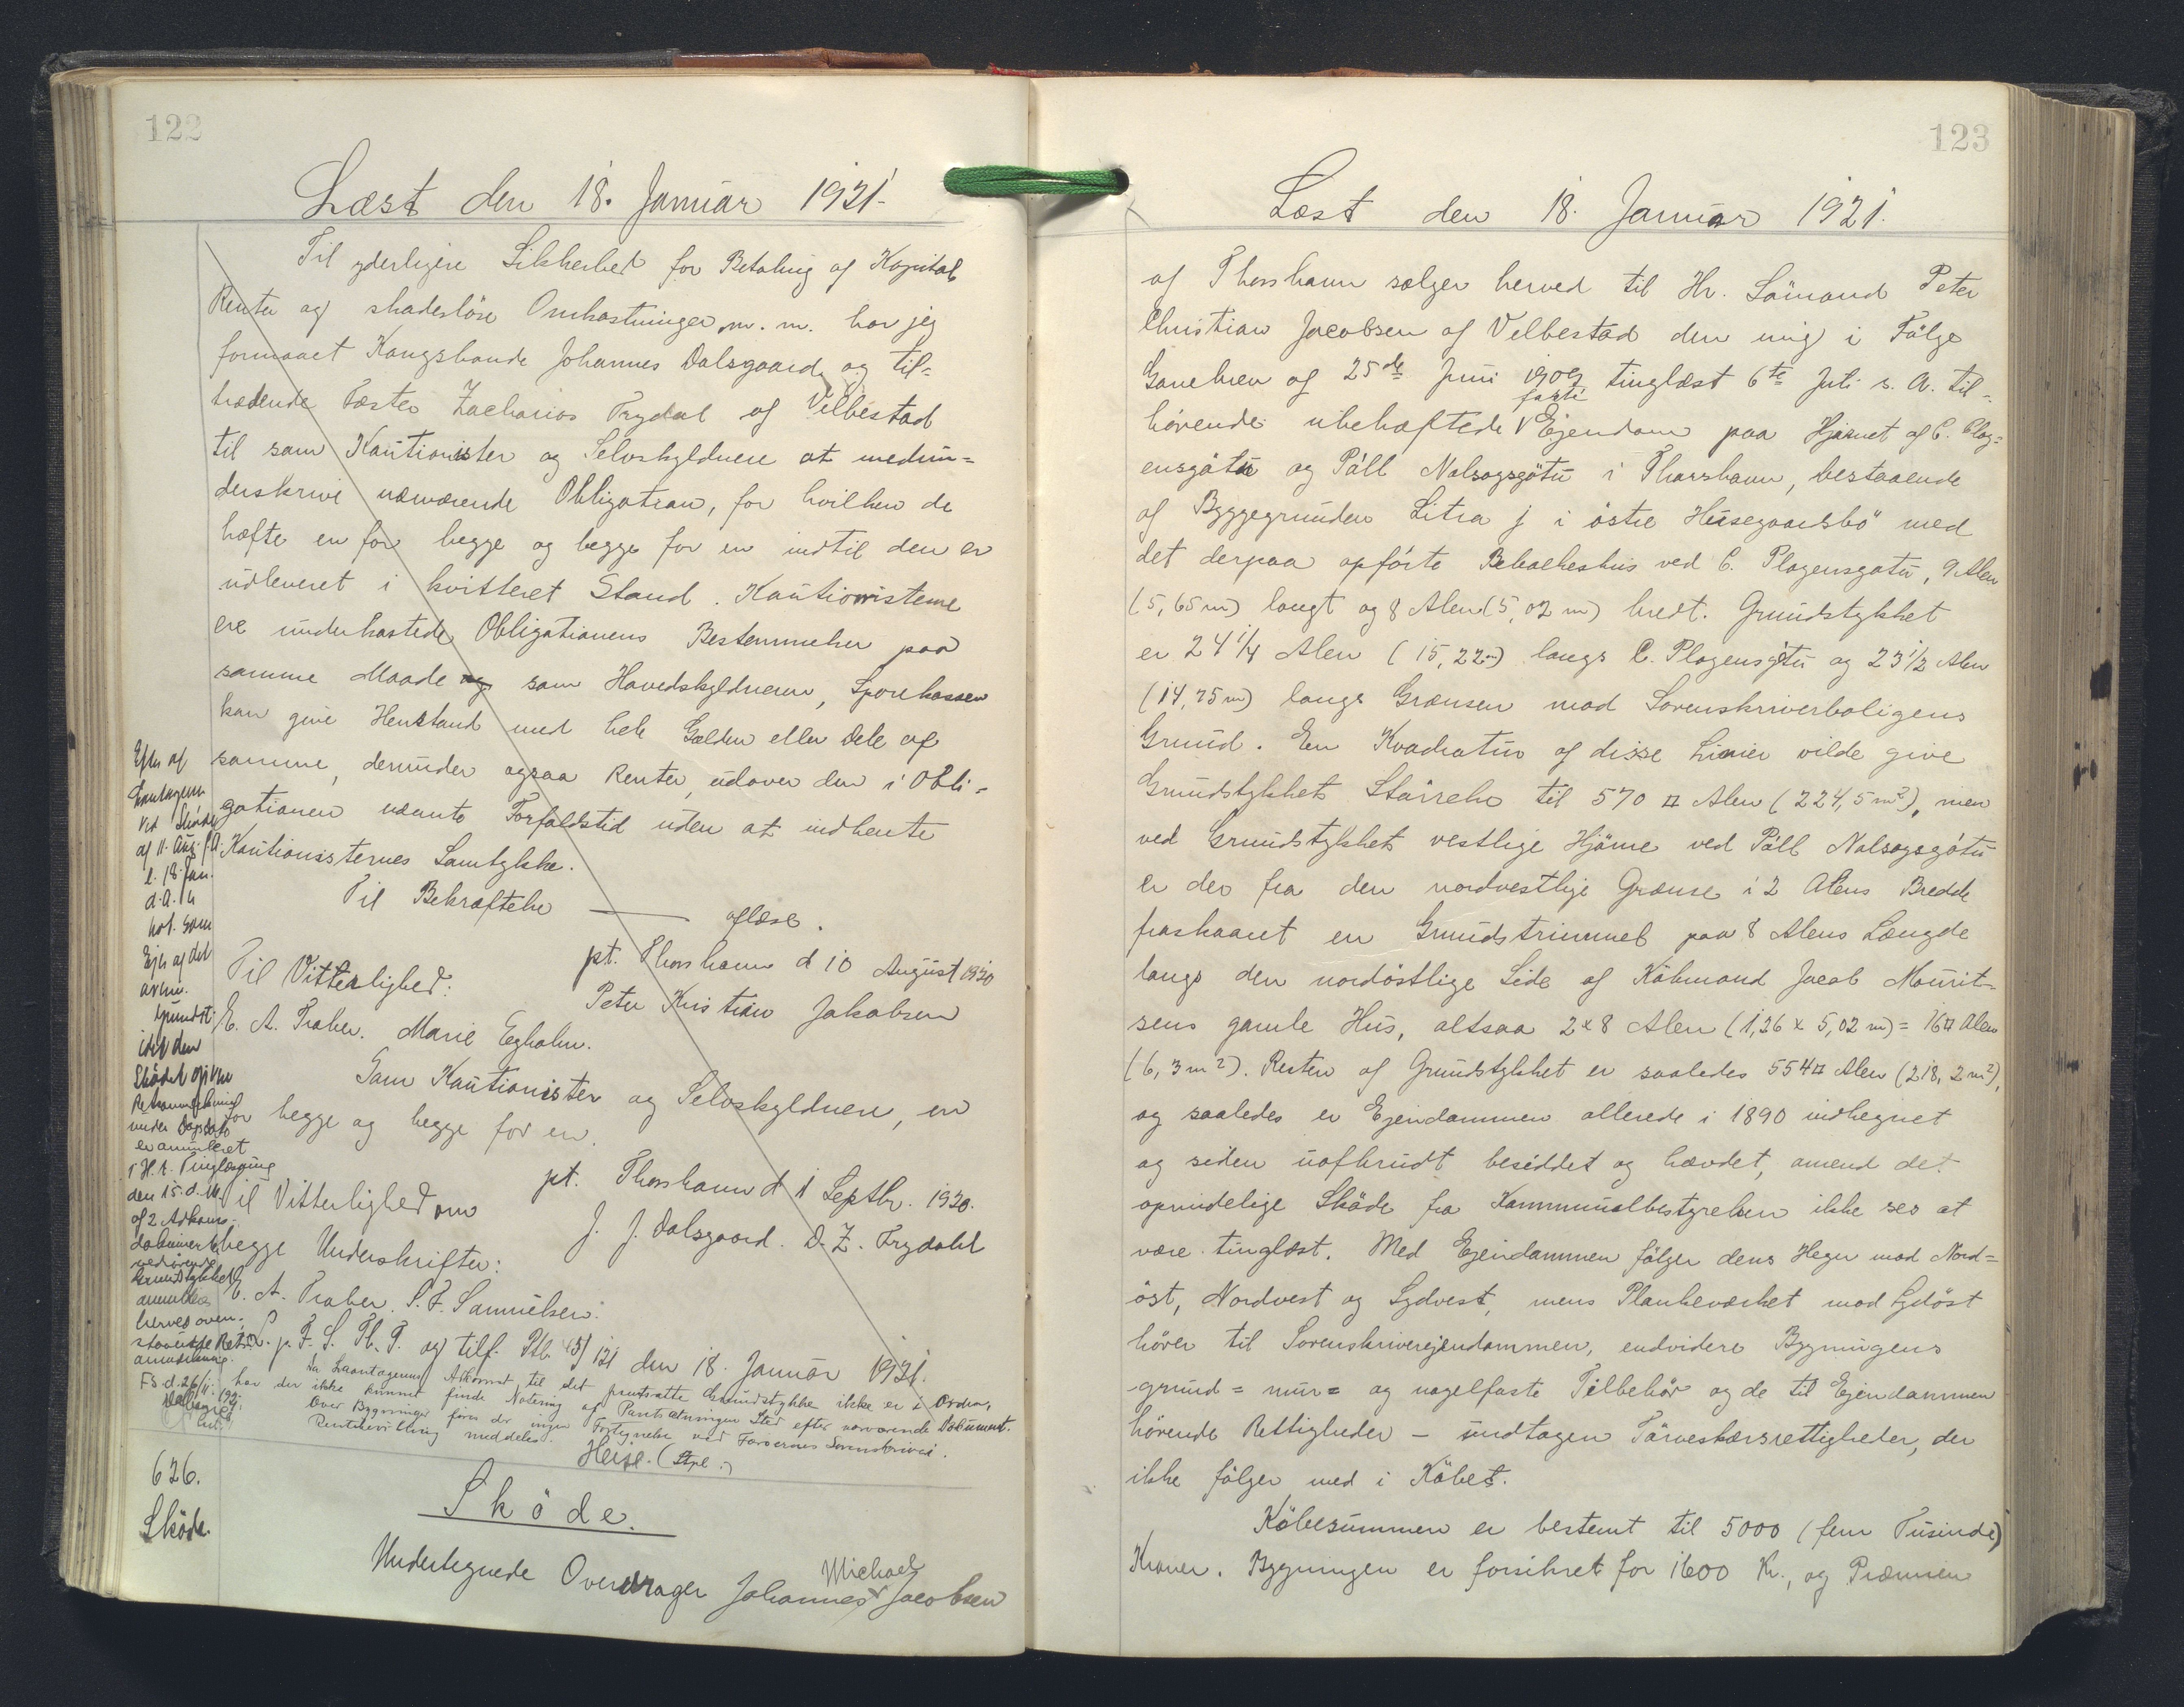 122
Læst den 18. Januar 1921.
Til yderligere Sikkerhed for Betaling af Kapital
Renter og skadesløse Omkostninger m. m. har jeg
formaaet Kongsbonde Johannes Dalsgaard og til-
trædende Fæster Zacharias Trydal af Velbestad
til som Kautionister og Selvskyldnere at medun-
derskrive nærværende Obligation, for hvilken de
hæfte en for begge og begge for en indtil den er
udleveret i kvitteret Stand. Kautionisterne
ere underkastede Obligationens Bestemmelser paa
samme Maade og som Hovedskyldneren, Sparekassen
kan give Henstand med hele Gælden eller Dele af
samme, derunder ogsaa Renter, udover den i Obli-
gationen nævnte Forfaldstid uden at indhente
Kautionisternes Samtykke.
Til Bekræftelse — oplæse.
pt. Thorshavn d 10 August 1920
Peter Kristian Jakobsen
Til Vitterlighed:
E. A. Traber. Marie Egholm.
Som Kautionister og Selvskyldnere, en
for begge og begge for en.
pt. Thorshavn d 1 Septbr. 1920.
J. J. Dalsgaard. D. Z. Trydahl
Til Vitterlighed om
begge Underskrifter:
E. A. Traber. S. F. Samuelsen.
L. p. F. S. Th. T. og tilf. Ptb. 45/121 den 18. Januar 1921.
Da Laantagerens Adkomst til det pantsatte Grundstykke ikke er i Orden,
har der ikke kunnet finde Notering af Pantsætningen Sted efter nærværende Dokument.
Over Bygninger føres der ingen Fortegnelse ved Færøernes Sorenskriveri.
Rentebevilling meddeles.
Heise. (Stpl.)
Efter at
Laantageren
ved Skøde
af 11. Aug. f. A.
l. 18. Jan.
d. A. er
not. som
Ejer af det
Grundst.
idet den
Skødet givne
Retsanmærkning
under Dags Dato
er annulleret
i H. t. Tinglæsning
den 15. d. M.
af 2 Adkomst-
dokumenter
vedrørende
Grundstykket
annulleres
herved oven-
staaende Rets-
anmærkning.
FS d. 26/11 1921.
626.
Skøde.
Skøde.
Undertegnede Overdrager Johannes Michael Jacobsen
123
Læst den 18. Januar 1921.
af Thorshavn sælger herved til Hr. Sömand Peter
Christian Jacobsen af Velbestad den mig i Følge
Gavebrev af 25de Juni 1909, tinglæst 6te Juli s. A. til-
hørende ubehæftede faste Ejendom paa Hjørnet af C. Plog-
ensgøtu og Páll Nolsoysgøtu i Thorshavn, bestaaende
af Byggegrunden Litra j i østre Husegaardsbø med
det derpaa opførte Beboelseshus ved C. Plogensgøtu, 9 Alen
(5,65 m) langt og 8 Alen (5,02 m) bredt. Grundstykket
er 24 1/4 Alen (15,22 m) langs C. Plogensgøtu og 23 1/2 Alen
(14,75 m) langs Grænsen mod Sorenskriverboligens
Grund. En Kvadratur af disse Linier vilde give
Grundstykkets Størrelse til 570 □ Alen (224,5 m²), men
ved Grundstykkets vestlige Hjørne ved Páll Nolsoysgøtu
er der fra den nordvestlige Grænse i 2 Alens Bredde
fraskaaret en Grundstrimmel paa 8 Alens Længde
langs den nordøstlige Side af Købmand Jacob Mourit-
sens gamle Hus, altsaa 2 x 8 Alen (1,26 x 5,02 m) = 16 □ Alen
(6,3 m²). Resten af Grundstykket er saaledes 554 □ Alen (218,2 m²),
og saaledes er Ejendommen allerede i 1890 indhegnet
og siden uafbrudt besiddet og hævdet, omend det
oprindelige Skøde fra Kommunalbestyrelsen ikke ses at
være tinglæst. Med Ejendommen følger dens Hegn mod Nord-
øst, Nordvest og Sydvest, mens Plankeværket mod Sydøst
hører til Sorenskriverejendommen, endvidere Bygningens
grund- mur- og nagelfaste Tilbehør og de til Ejendommen
hørende Rettigheder – undtagen Tørveskærsrettigheder, der
ikke følger med i Købet.
Købesummen er bestemt til 5000 (fem Tusinde)
Kroner. Bygningen er forsikret for 1600 Kr., og Præmien